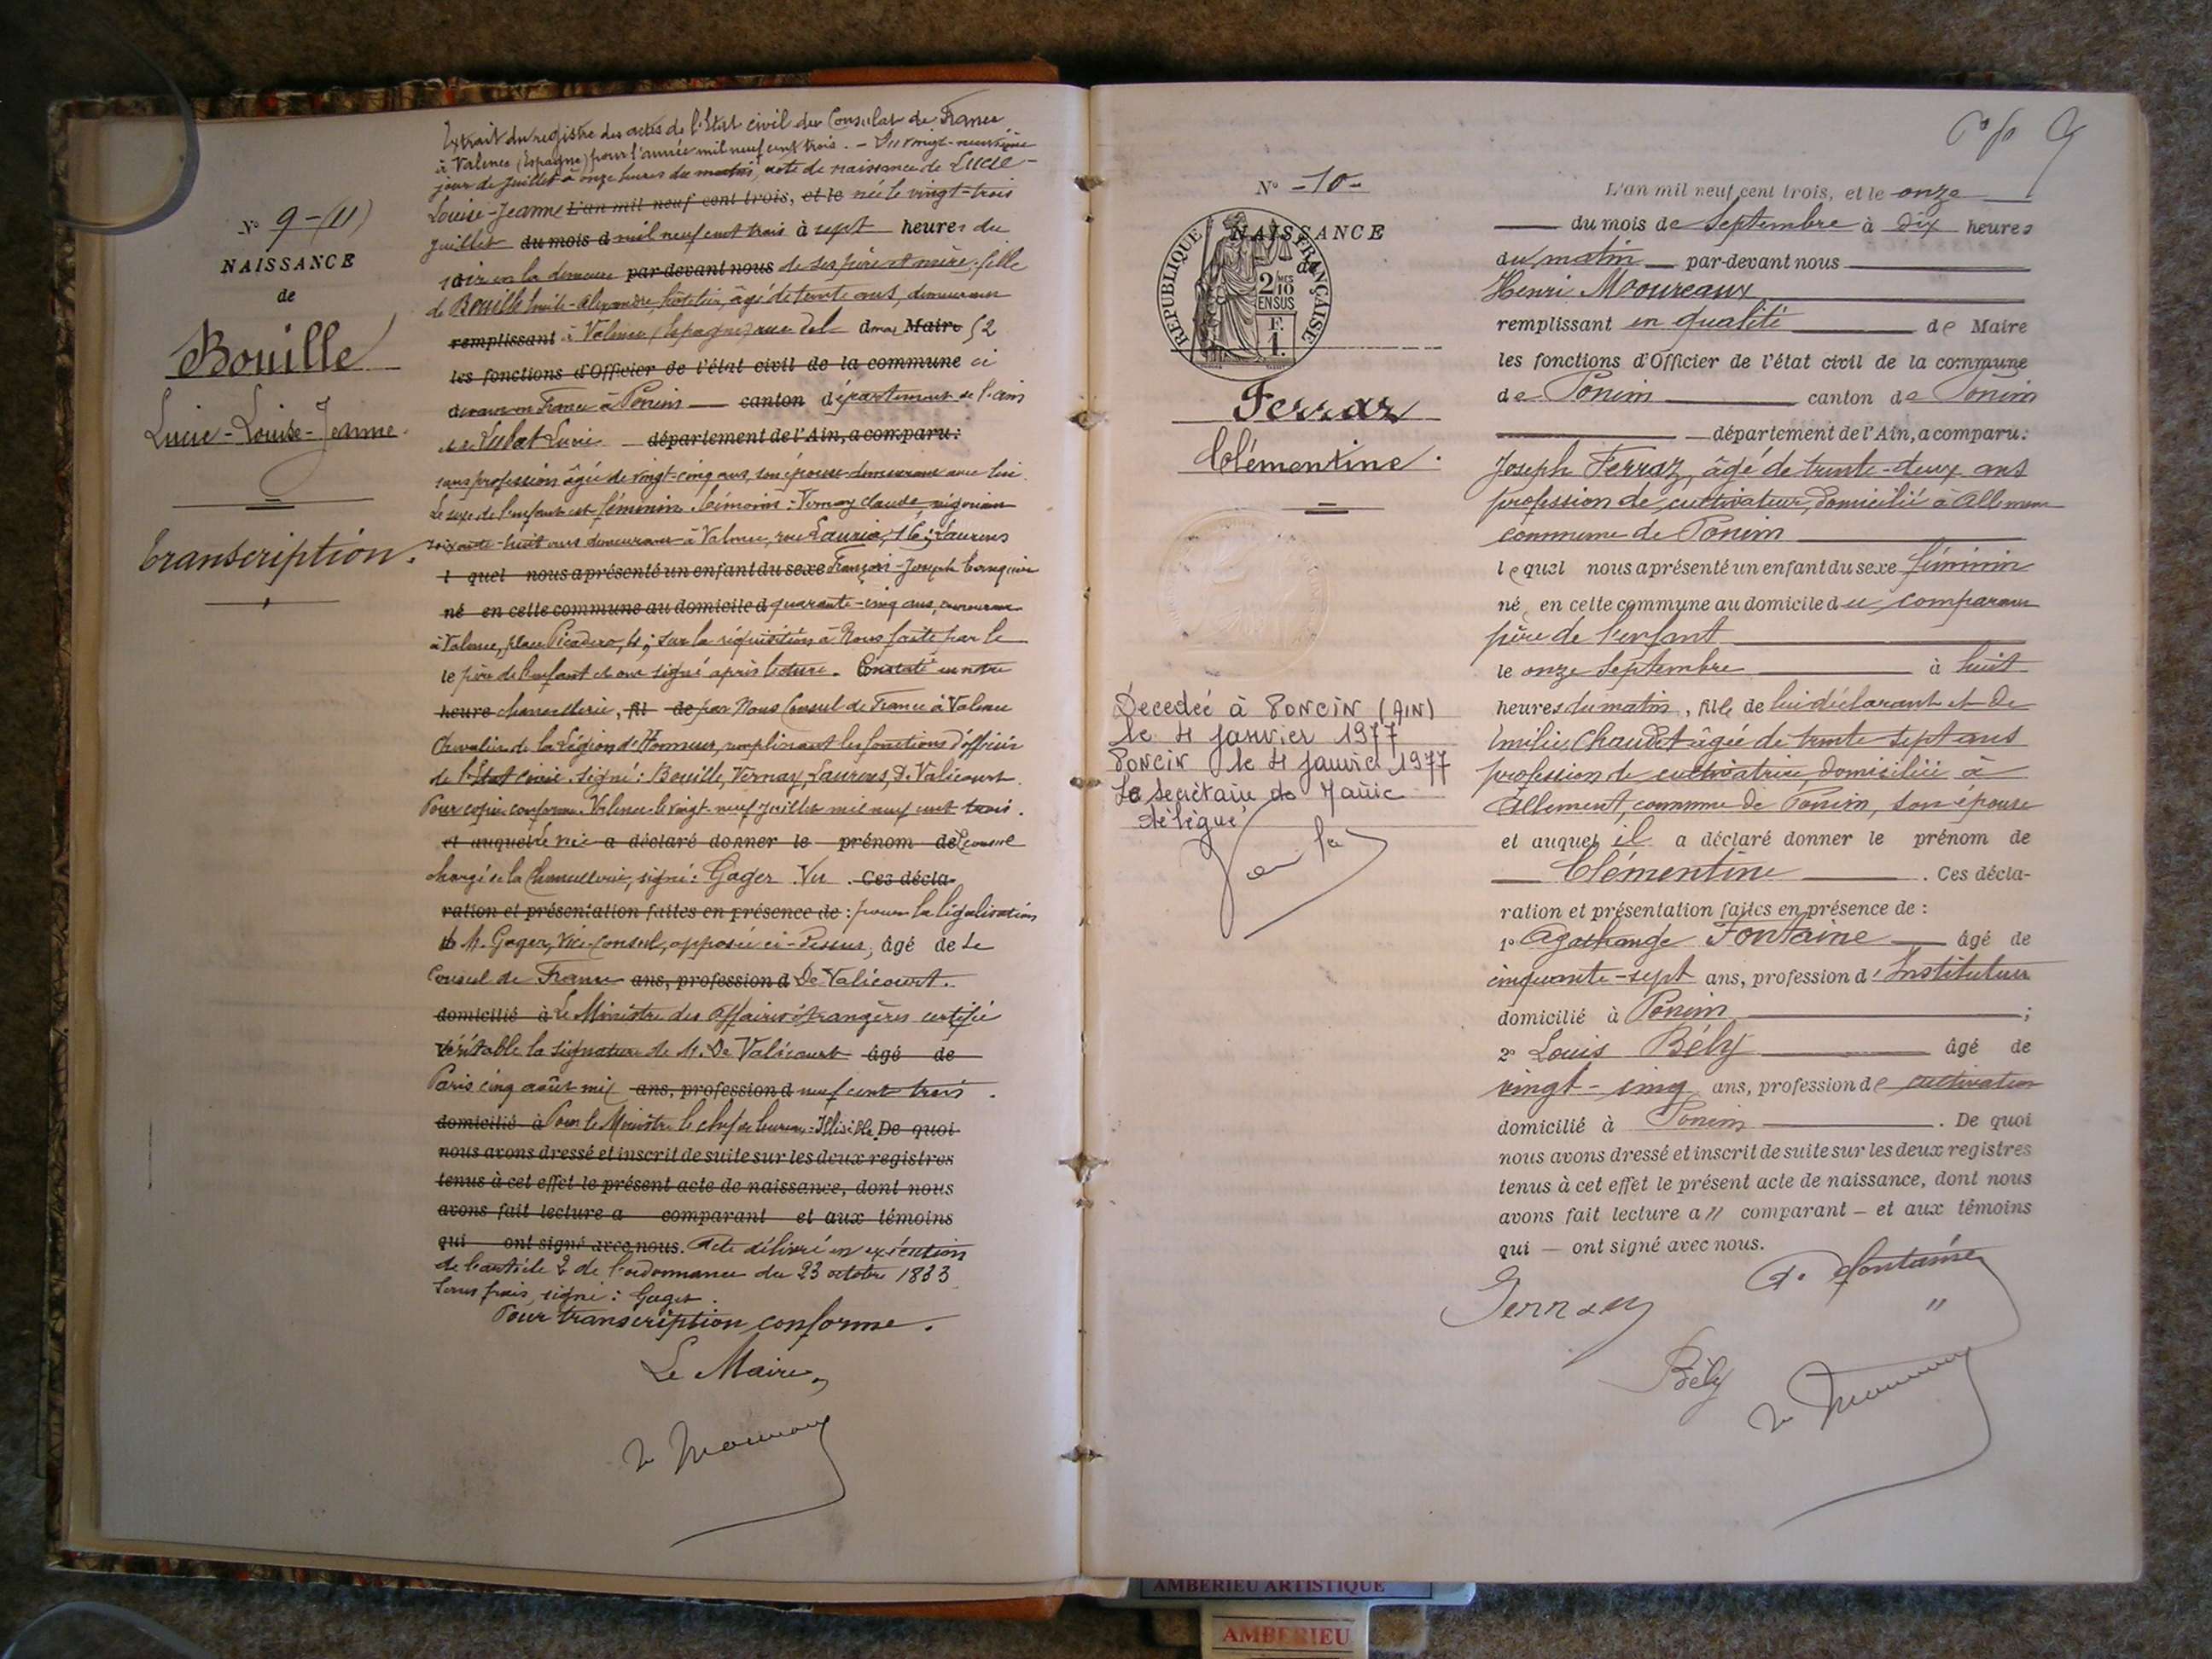 N° 9-(11)
NAISSANCE
de
Bouille
Lucie-Louise-Jeanne.
Transcription.
Extrait du registre des actes de l'Etat civil du Consulat de France
à Valence (Espagne) pour l'année mil neuf cent trois. - Du vingt-neuvième
jour de Juillet à onze heures du matin, acte de naissance de Lucie-
Louise-Jeanne L'an mil neuf cent trois, et le née le vingt-trois
Juillet du mois d mil neuf cent trois à sept heures du
soir en la demeure par-devant nous de ses père et mère; fille
de Bouille Emile-Alexandre, hôtelier, âgé de trente ans, demeurant
remplissant à Valence (Espagne) rue del Maire 52
les fonctions d'Officier de l'état civil de la commune ci
devant en France à Poncin canton département de l'Ain
et de Lucie département de l'Ain, a comparu:
sans profession âgée de vingt-cinq ans, son épouse demeurant avec lui.
Le sexe de l'enfant est féminin. Témoins: Vernay Claude, négociant
soixante-huit ans demeurant à Valence, rue Lauria, 16; Laurens
l quel nous a présenté un enfant du sexe François-Joseph
né en cette commune au domicile d quarante-cinq ans, demeurant
à Valence, place Picadero, 4; sur la réquisition à Nous faite par le
le père de l'enfant et ont signé après lecture. Constaté en notre
heure chancellerie, fil de par Nous Consul de France à Valence
Chevalier de la Légion d'Honneur, remplissant les fonctions d'officier
de l'Etat civil. signé: Bouille, Vernay, Laurens, De Valicourt.
Pour copie conforme. Valence le vingt-neuf Juillet mil neuf cent trois.
et auquel Le vice a déclaré donner le prénom de Consul
chargé de la Chancellerie, signé: Gager. Vu . Ces décla-
ration et présentation faites en présence de : pour la légalisation
de M. Gager, Vice-Consul, apposée ci-dessus, âgé de Le
Consul de France ans, profession d De Valicourt.
domicilié à Le Ministre des Affaires étrangères certifie
véritable la signature de M. De Valicourt âgé de
Paris cinq août mil ans, profession d neuf cent trois.
domicilié à Pour le Ministre le chef de bureau - Illisible. De quoi
nous avons dressé et inscrit de suite sur les deux registres
tenus à cet effet le présent acte de naissance, dont nous
avons fait lecture a comparant et aux témoins
qui ont signé avec nous. Acte délivré en exécution
de l'article 2 de l'ordonnance du 23 octobre 1833
Sans frais, signé: Gager.
Pour transcription conforme.
Le Maire,
N° -10-
NAISSANCE
de
RÉPUBLIQUE FRANÇAISE
2/10 MES
EN SUS
F.
1.
Ferraz
Clémentine.
Decedée à PONCIN (AIN)
le 4 janvier 1977
PONCIN le 4 janvier 1977
Le secrétaire de Mairie
délégué
9
L'an mil neuf cent trois, et le onze
du mois de Septembre à dix heures
du matin par-devant nous
Henri Moureaux
remplissant en qualité de Maire
les fonctions d'Officier de l'état civil de la commune
de Poncin canton de Poncin
département de l'Ain, a comparu:
Joseph Ferraz, âgé de trente-deux ans
profession de cultivateur, domicilié à Allement
commune de Poncin
lequel nous a présenté un enfant du sexe féminin
né, en cette commune au domicile du comparant
père de l'enfant
le onze Septembre à huit
heures du matin, fille de lui déclarant et de
Emilie Chaudet âgée de trente sept ans
profession de cultivatrice, domiciliée à
Allement, commune de Poncin, son épouse
et auquel il a déclaré donner le prénom de
Clémentine . Ces décla-
ration et présentation faites en présence de :
1° Agathange Fontaine âgé de
cinquante-sept ans, profession d'Instituteur
domicilié à Poncin ;
2° Louis Bély âgé de
vingt-cinq ans, profession de cultivateur
domicilié à Poncin . De quoi
nous avons dressé et inscrit de suite sur les deux registres
tenus à cet effet le présent acte de naissance, dont nous
avons fait lecture a // comparant - et aux témoins
qui - ont signé avec nous.
A. Fontaine
Ferraz
Bély
AMBERIEU ARTISTIQUE
AMBERIEU